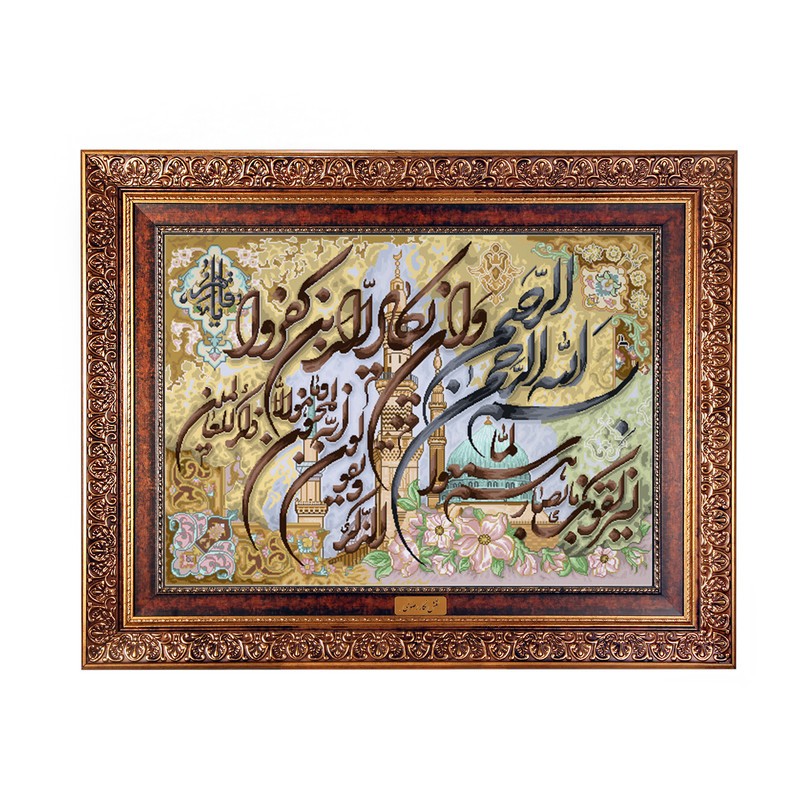 بسم الله الرحمن الرحیم
وان یکاد الذین کفروا
لیزلقونک بابصارهم لما سمعوا
الذکر و یقولون انه لمجنون
وما هو الا ذکر للعالمین